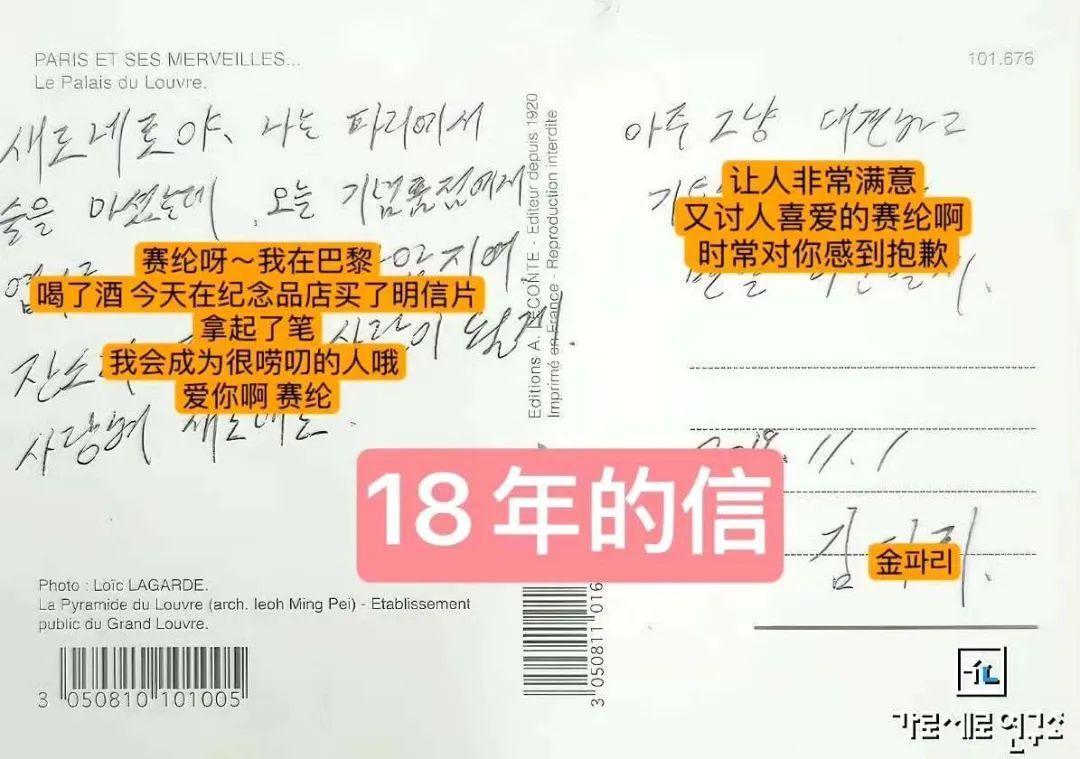 PARIS ET SES MERVEILLES...
Le Palais du Louvre.
101.676
새로네로야, 나는 파리에서
술을 마셨는데, 오늘 기념품점에서
赛纶呀～我在巴黎
喝了酒 今天在纪念品店买了明信片
拿起了笔
我会成为很唠叨的人哦
爱你啊 赛纶
사람이 될게.
사랑해 새로네로.
Editions A. LECONTE - Editeur depuis 1920
Imprimé en France - Reproduction interdite
아주 그냥 대견하고
让人非常满意
又讨人喜爱的赛纶啊
时常对你感到抱歉
18年的信
2018.11.1
金파리
Photo : Loïc LAGARDE.
La Pyramide du Louvre (arch. Ieoh Ming Pei) - Etablissement
public du Grand Louvre.
3 050810 101005
3 050811 016
가로세로연구소